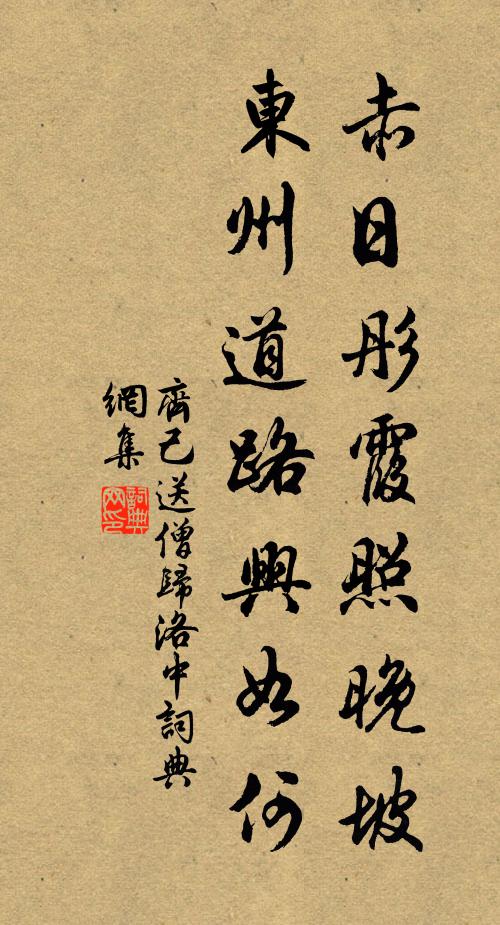 赤日彤霞照晚坡
東州道路興如何
齊己送僧歸洛中詞典
網集
詞典網印